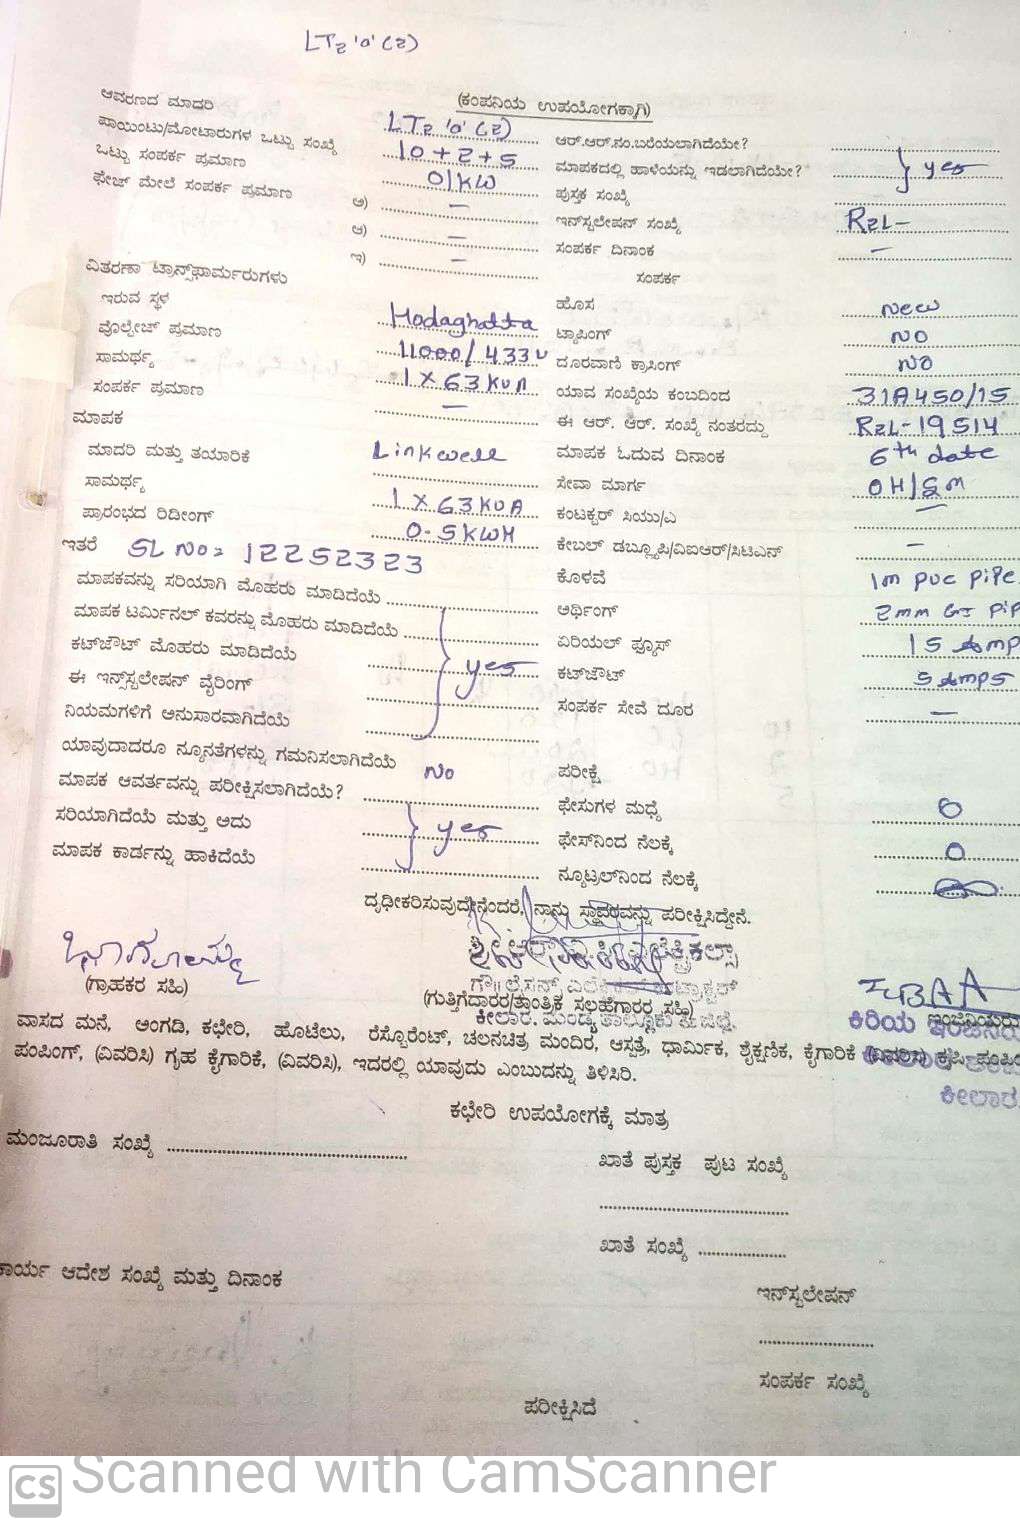 LT2 'a' (2)
(ಕಂಪನಿಯ ಉಪಯೋಗಕ್ಕಾಗಿ)
ಆವರಣದ ಮಾದರಿ LT2 'a' (2) ಆರ್.ಆರ್.ನಂ.ಬರೆಯಲಾಗಿದೆಯೇ?
ಪಾಯಿಂಟು/ಮೋಟಾರುಗಳ ಒಟ್ಟು ಸಂಖ್ಯೆ 10+2+5 ಮಾಪಕದಲ್ಲಿ ಹಾಳೆಯನ್ನು ಇಡಲಾಗಿದೆಯೇ? yes
ಒಟ್ಟು ಸಂಪರ್ಕ ಪ್ರಮಾಣ 01KW ಪುಸ್ತಕ ಸಂಖ್ಯೆ
ಫೇಜ್ ಮೇಲೆ ಸಂಪರ್ಕ ಪ್ರಮಾಣ ಅ) — ಇನ್‌ಸ್ಟಲೇಷನ್ ಸಂಖ್ಯೆ R2L-
ಆ) — ಸಂಪರ್ಕ ದಿನಾಂಕ —
ಇ) — ಸಂಪರ್ಕ
ವಿತರಣಾ ಟ್ರಾನ್ಸ್‌ಫಾರ್ಮರುಗಳು
ಇರುವ ಸ್ಥಳ Hodaghatta ಹೊಸ New
ವೊಲ್ಟೇಜ್ ಪ್ರಮಾಣ 11000/433V ಟ್ಯಾಪಿಂಗ್ NO
ಸಾಮರ್ಥ್ಯ 1X63KVA ದೂರವಾಣಿ ಕ್ರಾಸಿಂಗ್ NO
ಸಂಪರ್ಕ ಪ್ರಮಾಣ — ಯಾವ ಸಂಖ್ಯೆಯ ಕಂಬದಿಂದ 31A450/15
ಮಾಪಕ ಈ ಆರ್. ಆರ್. ಸಂಖ್ಯೆ ನಂತರದ್ದು R2L-19514
ಮಾದರಿ ಮತ್ತು ತಯಾರಿಕೆ Linkwell ಮಾಪಕ ಓದುವ ದಿನಾಂಕ 6th date
ಸಾಮರ್ಥ್ಯ 1X63KVA ಸೇವಾ ಮಾರ್ಗ OH/SM
ಪ್ರಾರಂಭದ ರಿಡೀಂಗ್ 0.5KWH ಕಂಟಕ್ಟರ್ ಸಿಯು/ಎ —
ಇತರೆ SL NO: 12252323 ಕೇಬಲ್ ಡಬ್ಲ್ಯೂಪಿ/ವಿಐಆರ್/ಸಿಟಿಎನ್ —
ಮಾಪಕವನ್ನು ಸರಿಯಾಗಿ ಮೊಹರು ಮಾಡಿದೆಯೆ ಕೊಳವೆ 1m PVC PiPe
ಮಾಪಕ ಟರ್ಮಿನಲ್ ಕವರನ್ನು ಮೊಹರು ಮಾಡಿದೆಯೆ ಅರ್ಥಿಂಗ್ 2mm GI PiP
ಕಟ್‌ಜೌಟ್ ಮೊಹರು ಮಾಡಿದೆಯೆ yes ಏರಿಯಲ್ ಫ್ಯೂಸ್ 15 Amp
ಈ ಇನ್ಸ್‌ಸ್ಟಲೇಷನ್ ವೈರಿಂಗ್ ಕಟ್‌ಜೌಟ್ 5 Amps
ನಿಯಮಗಳಿಗೆ ಅನುಸಾರವಾಗಿದೆಯೆ ಸಂಪರ್ಕ ಸೇವೆ ದೂರ —
ಯಾವುದಾದರೂ ನ್ಯೂನತೆಗಳನ್ನು ಗಮನಿಸಲಾಗಿದೆಯೆ No ಪರೀಕ್ಷೆ
ಮಾಪಕ ಆವರ್ತವನ್ನು ಪರೀಕ್ಷಿಸಲಾಗಿದೆಯೆ? ಫೇಸುಗಳ ಮಧ್ಯೆ 0
ಸರಿಯಾಗಿದೆಯೆ ಮತ್ತು ಅದು yes ಫೇಸ್‌ನಿಂದ ನೆಲಕ್ಕೆ 0
ಮಾಪಕ ಕಾರ್ಡನ್ನು ಹಾಕಿದೆಯೆ ನ್ಯೂಟ್ರಲ್‌ನಿಂದ ನೆಲಕ್ಕೆ
ದೃಢೀಕರಿಸುವುದೇನೆಂದರೆ, ನಾನು ಸ್ಥಾವರವನ್ನು ಪರೀಕ್ಷಿಸಿದ್ದೇನೆ.
(ಗ್ರಾಹಕರ ಸಹಿ) (ಗುತ್ತಿಗೆದಾರರ/ತಾಂತ್ರಿಕ ಸಲಹೆಗಾರರ ಸಹಿ)
ಕೀಲಾರ. ಮಂಡ್ಯ ತಾಲ್ಲೂಕು
ಕಿರಿಯ ಇಂಜಿನಿಯರ
ವಾಸದ ಮನೆ, ಅಂಗಡಿ, ಕಛೇರಿ, ಹೊಟೆಲು, ರೆಸ್ಟೊರೆಂಟ್, ಚಲನಚಿತ್ರ ಮಂದಿರ, ಆಸ್ಪತ್ರೆ, ಧಾರ್ಮಿಕ, ಶೈಕ್ಷಣಿಕ, ಕೈಗಾರಿಕೆ (ವಿವರಿಸಿ) ಕೃಷಿ ಪಂಪಿಂ
ಪಂಪಿಂಗ್, (ವಿವರಿಸಿ) ಗೃಹ ಕೈಗಾರಿಕೆ, (ವಿವರಿಸಿ), ಇದರಲ್ಲಿ ಯಾವುದು ಎಂಬುದನ್ನು ತಿಳಿಸಿರಿ.
ಕೀಲಾರ
ಕಛೇರಿ ಉಪಯೋಗಕ್ಕೆ ಮಾತ್ರ
ಮಂಜೂರಾತಿ ಸಂಖ್ಯೆ
ಖಾತೆ ಪುಸ್ತಕ ಪುಟ ಸಂಖ್ಯೆ
ಖಾತೆ ಸಂಖ್ಯೆ
ಕಾರ್ಯ ಆದೇಶ ಸಂಖ್ಯೆ ಮತ್ತು ದಿನಾಂಕ
ಇನ್‌ಸ್ಟಲೇಷನ್
ಸಂಪರ್ಕ ಸಂಖ್ಯೆ
ಪರೀಕ್ಷಿಸಿದೆ
CS Scanned with CamScanner